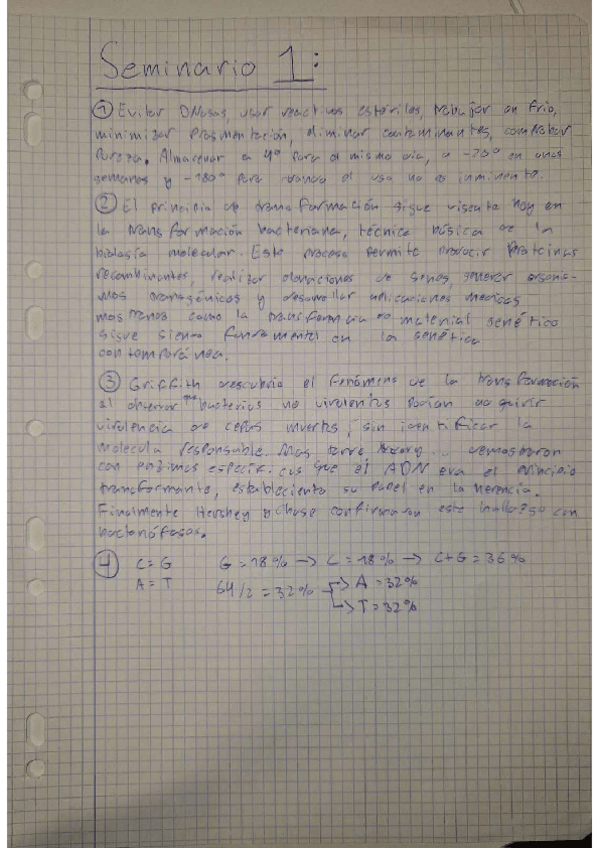 Seminario 1:
① Evitar DNasas, usar reactivos estériles, trabajar en frío,
minimizar fragmentación, eliminar contaminantes, comprobar
pureza. Almacenar a 4º para el mismo día, a -20º en unas
semanas y -180º para cuando el uso no es inminente.
② El principio de transformación sigue vigente hoy en
la transformación bacteriana, técnica básica de la
biología molecular. Este proceso permite producir proteínas
recombinantes, realizar clonaciones de genes, generar organis-
mos transgénicos y desarrollar aplicaciones medicas
mostrando como la transferencia de material genético
sigue siendo fundamental en la genética
contemporánea.
③ Griffith descubrió el fenómeno de la transformación
al observar que bacterias no virulentas podían adquirir
virulencia de cepas muertas, sin identificar la
molecula responsable. Mas tarde demostraron
con enzimas específicas que el ADN era el principio
transformante, estableciento su papel en la herencia.
Finalmente Hershey y Chase confirmaron este hallazgo con
bacteriófagos.
④ C=G G=18% → C=18% → C+G=36%
A=T 64/2=32% → A=32%
→ T=32%